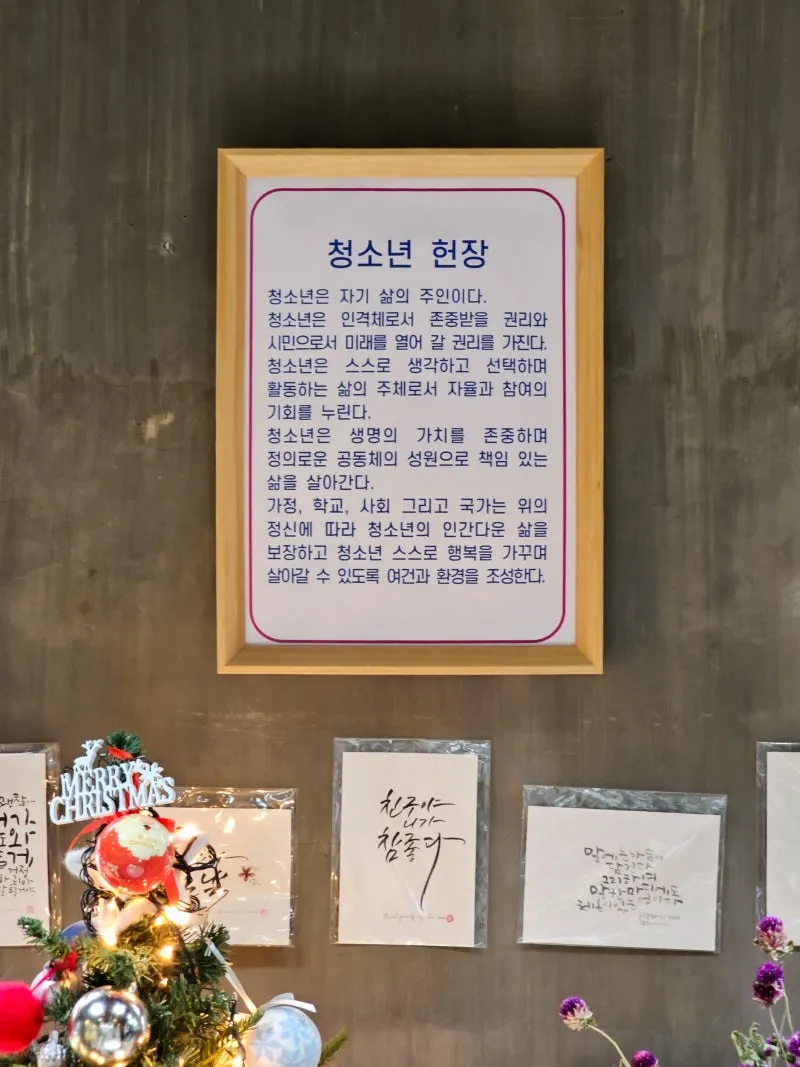 청소년 헌장
청소년은 자기 삶의 주인이다.
청소년은 인격체로서 존중받을 권리와
시민으로서 미래를 열어 갈 권리를 가진다.
청소년은 스스로 생각하고 선택하며
활동하는 삶의 주체로서 자율과 참여의
기회를 누린다.
청소년은 생명의 가치를 존중하며
정의로운 공동체의 성원으로 책임 있는
삶을 살아간다.
가정, 학교, 사회 그리고 국가는 위의
정신에 따라 청소년의 인간다운 삶을
보장하고 청소년 스스로 행복을 가꾸며
살아갈 수 있도록 여건과 환경을 조성한다.
MERRY
CHRISTMAS
친구야
니가
참좋다